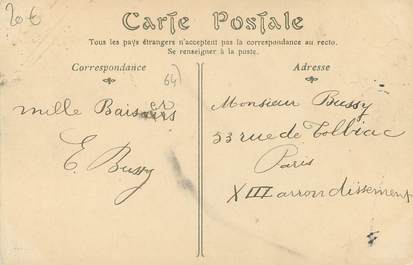 20 €
Carte Postale
Tous les pays étrangers n'acceptent pas la correspondance au recto.
Se renseigner à la poste.
Correspondance
64)
mille Baisers
E. Bussy
Adresse
Monsieur Bussy
53 rue de Tolbiac
Paris
XIII arrondissement